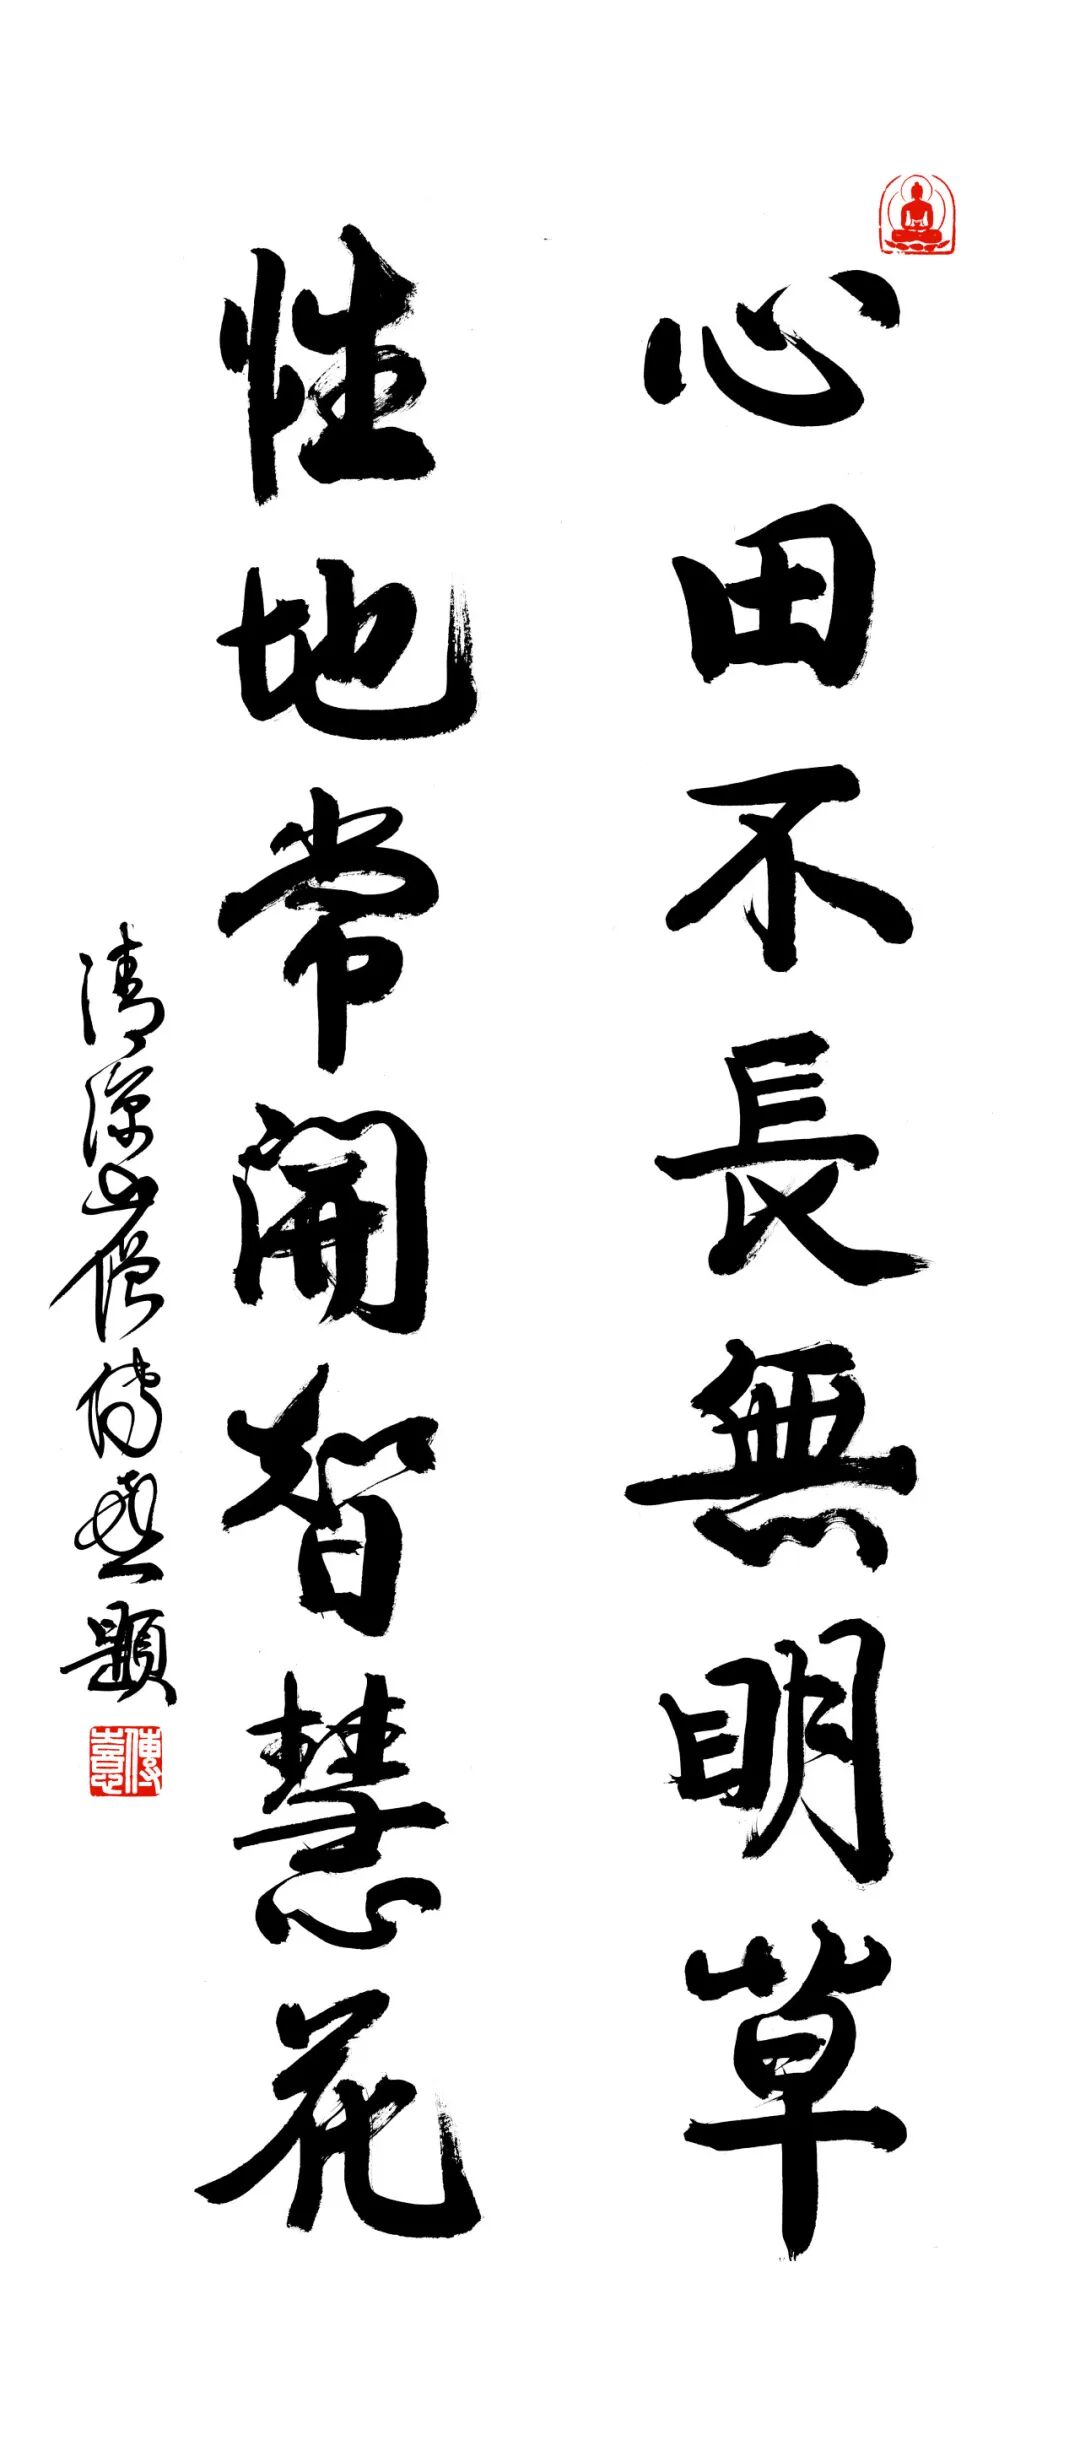 心田不長無明草
性地常開智慧花
清涼山僧傳憙題
傳憙